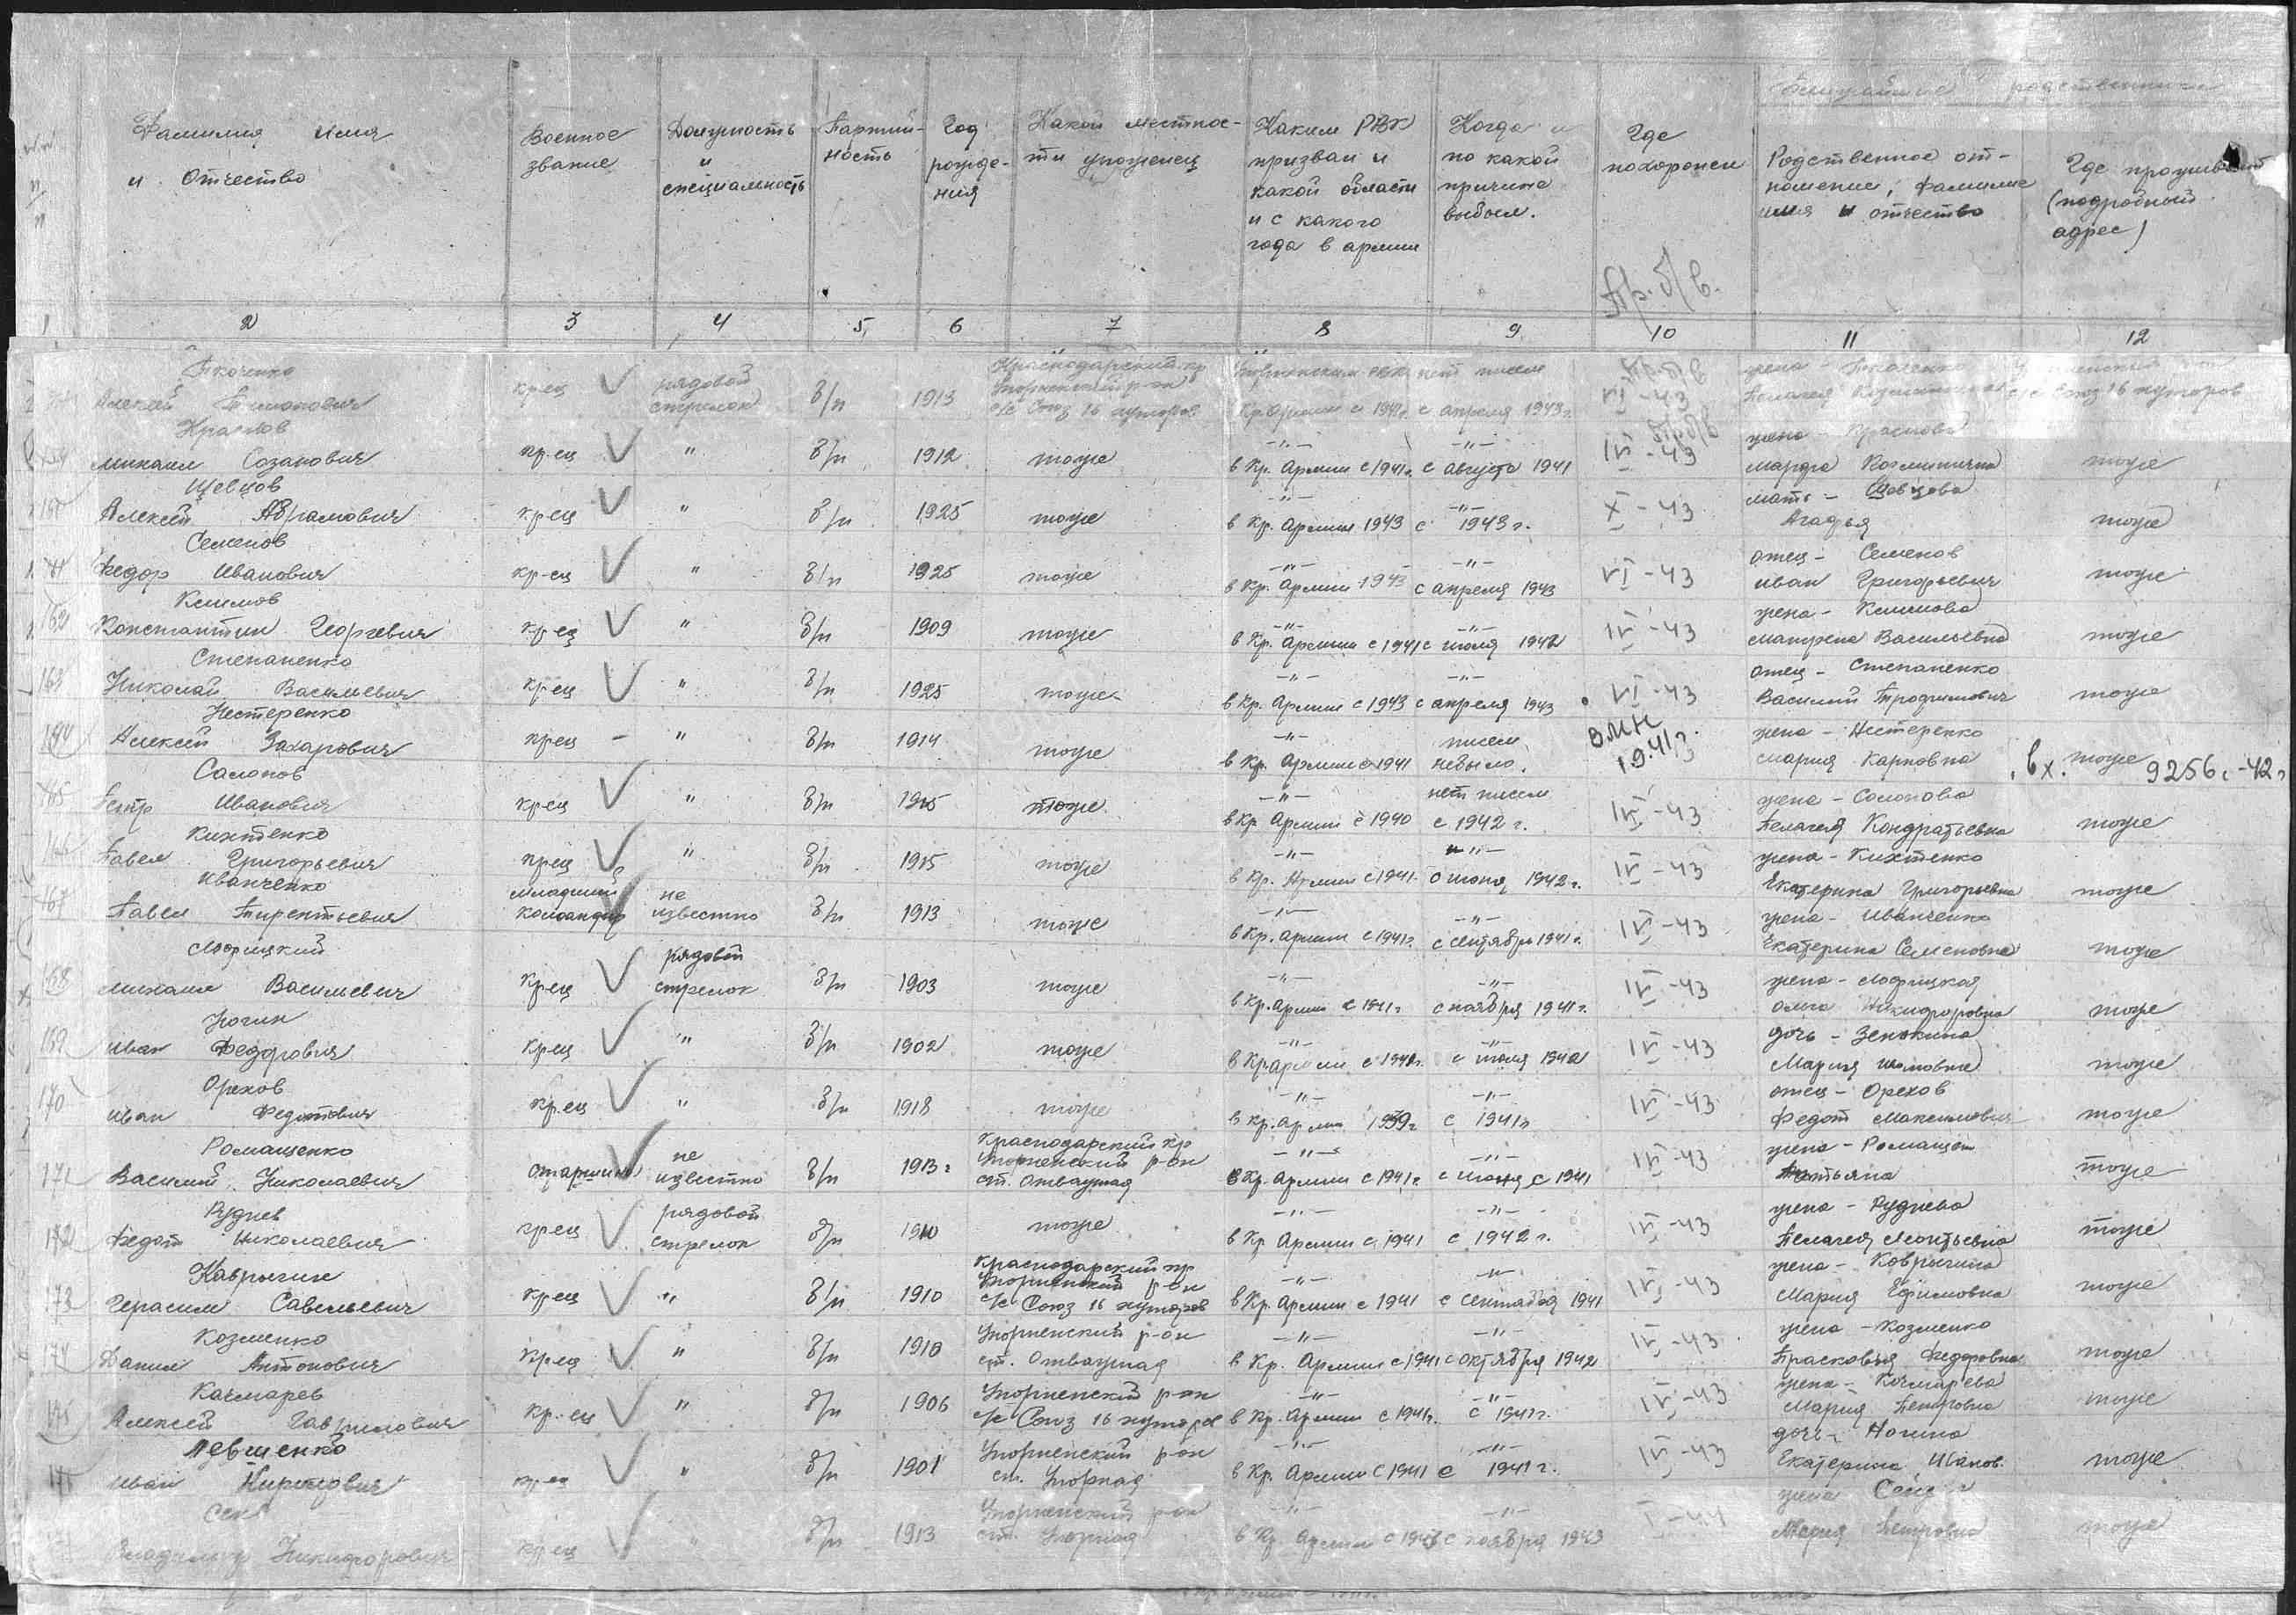 Фамилия имя и отчество
Военное звание
Должность и специальность
Партийность
Год рождения
Какой местности уроженец
Каким РВК призван и какой области и с какого года в армии
Когда и по какой причине выбыл.
Где похоронен
Пр. б/в.
Ближайшие родственники
Родственное отношение, фамилия имя и отчество
Где проживает (подробный адрес)
1 2 3 4 5 6 7 8 9 10 11 12
Ткаченко
Алексей кр-ец рядовой стрелок б/п 1913 Краснодарский кр Упорненский р-он с/с Союз 16 хуторов нет писем Кр. Армии с 1941г. с апреля 1943г. VI-43 жена - Ткаченко Пелагея с/с Союз 16 хуторов
Краснов
Михаил Созонович кр-ец " б/п 1912 тоже -"- в Кр. Армии с 1941г. -"- с августа 1941 IV-43 жена - Краснова Марфа тоже
Шевцов
Алексей Абрамович кр-ец " б/п 1925 тоже -"- в Кр. Армии 1943 -"- с 1943 г. X-43 мать - Шевцова Агафья тоже
Семенов
Федор Иванович кр-ец " б/п 1925 тоже -"- в Кр. Армии 1943 -"- с апреля 1943 VI-43 отец - Семенов Иван Григорьевич тоже
Климов
162 Константин Георгевич кр-ец " б/п 1909 тоже -"- в Кр. Армии с 1941 -"- с июля 1942 IV-43 жена - Климова Васильевна тоже
Степаненко
163 Николай Васильевич кр-ец " б/п 1925 тоже -"- в Кр. Армии с 1943 -"- с апреля 1943 VI-43 отец - Степаненко Василий Трофимович тоже
Нестеренко
164 Алексей Захарович кр-ец - " б/п 1914 тоже -"- в Кр. Армии с 1941 писем небыло. 1941г. жена - Нестеренко Мария Карповна вх. тоже 9256с-42г
Солонов
165 Петр Иванович кр-ец " б/п 1915 тоже -"- в Кр. Армии с 1940 нет писем с 1942 г. IV-43 жена - Солонова Пелагея Кондратьевна тоже
Кихтенко
166 Павел Григорьевич кр-ец " б/п 1915 тоже -"- в Кр. Армии с 1941. -"- с июня 1942г. IV-43 жена - Кихтенко Екатерина Григорьевна тоже
Иванченко
167 Павел Тирентьевич младший командир не известно б/п 1913 тоже -"- в Кр. Армии с 1941г. -"- с сентября 1941г. IV-43 жена - Иванченко Екатерина Семеновна тоже
168 Михаил Васильевич кр-ец рядовой стрелок б/п 1903 тоже -"- в Кр. Армии с 1941г -"- с ноября 1941г. IV-43 жена - Ольга Никифоровна тоже
169 Иван Федорович кр-ец " б/п 1902 тоже -"- в Кр. Армии -"- с июля 1942 IV-43 дочь - Зенкина Мария тоже
Орехов
170 Иван Федотович кр-ец " б/п 1918 тоже -"- в Кр. Армии 1939г -"- с 1941г IV-43 отец - Орехов Федот Максимович тоже
Ромащенко
171 Василий Николаевич старшина не известно б/п 1913г Краснодарский кр Упорненский р-он ст. Отважная -"- в Кр. Армии с 1941г -"- с июня с 1941 IV-43 жена - Ромащен Татьяна тоже
Руднев
172 Федот Николаевич кр-ец рядовой стрелок б/п 1910 тоже -"- в Кр. Армии с 1941 -"- с 1942 г. IV-43 жена - Руднева Пелагея Леонтьевна тоже
Каврыгин
173 Герасим Савельевич кр-ец " б/п 1910 Краснодарский кр Упорненский р-он с/с Союз 16 хуторов -"- в Кр. Армии с 1941 -"- с сентября 1941 IV-43 жена - Коврыгина Мария Ефимовна тоже
Козменко
174 Данил Антонович кр-ец " б/п 1910 Упорненский р-он ст. Отважная -"- в Кр. Армии с 1941 -"- с октября 1942 IV-43 жена - Козменко Прасковья Федоровна тоже
Качмарев
175 Алексей Гаврилович кр-ец " б/п 1906 Упорненский р-он с/с Союз 16 хуторов -"- в Кр. Армии с 1941г. -"- с 1941г. IV-43 жена - Качмарева Мария Петровна тоже
Левшенко
Иван кр-ец " б/п 1901 Упорненский р-он ст. Упорная -"- в Кр. Армии с 1941 -"- с 1941 г. IV-43 дочь - Нонина Екатерина Иванов. тоже
Владимир Никифорович кр-ец " б/п 1913 Упорненский р-он ст. Упорная -"- в Кр. Армии -"- с ноября 1943 I-44 жена Мария Петровна тоже